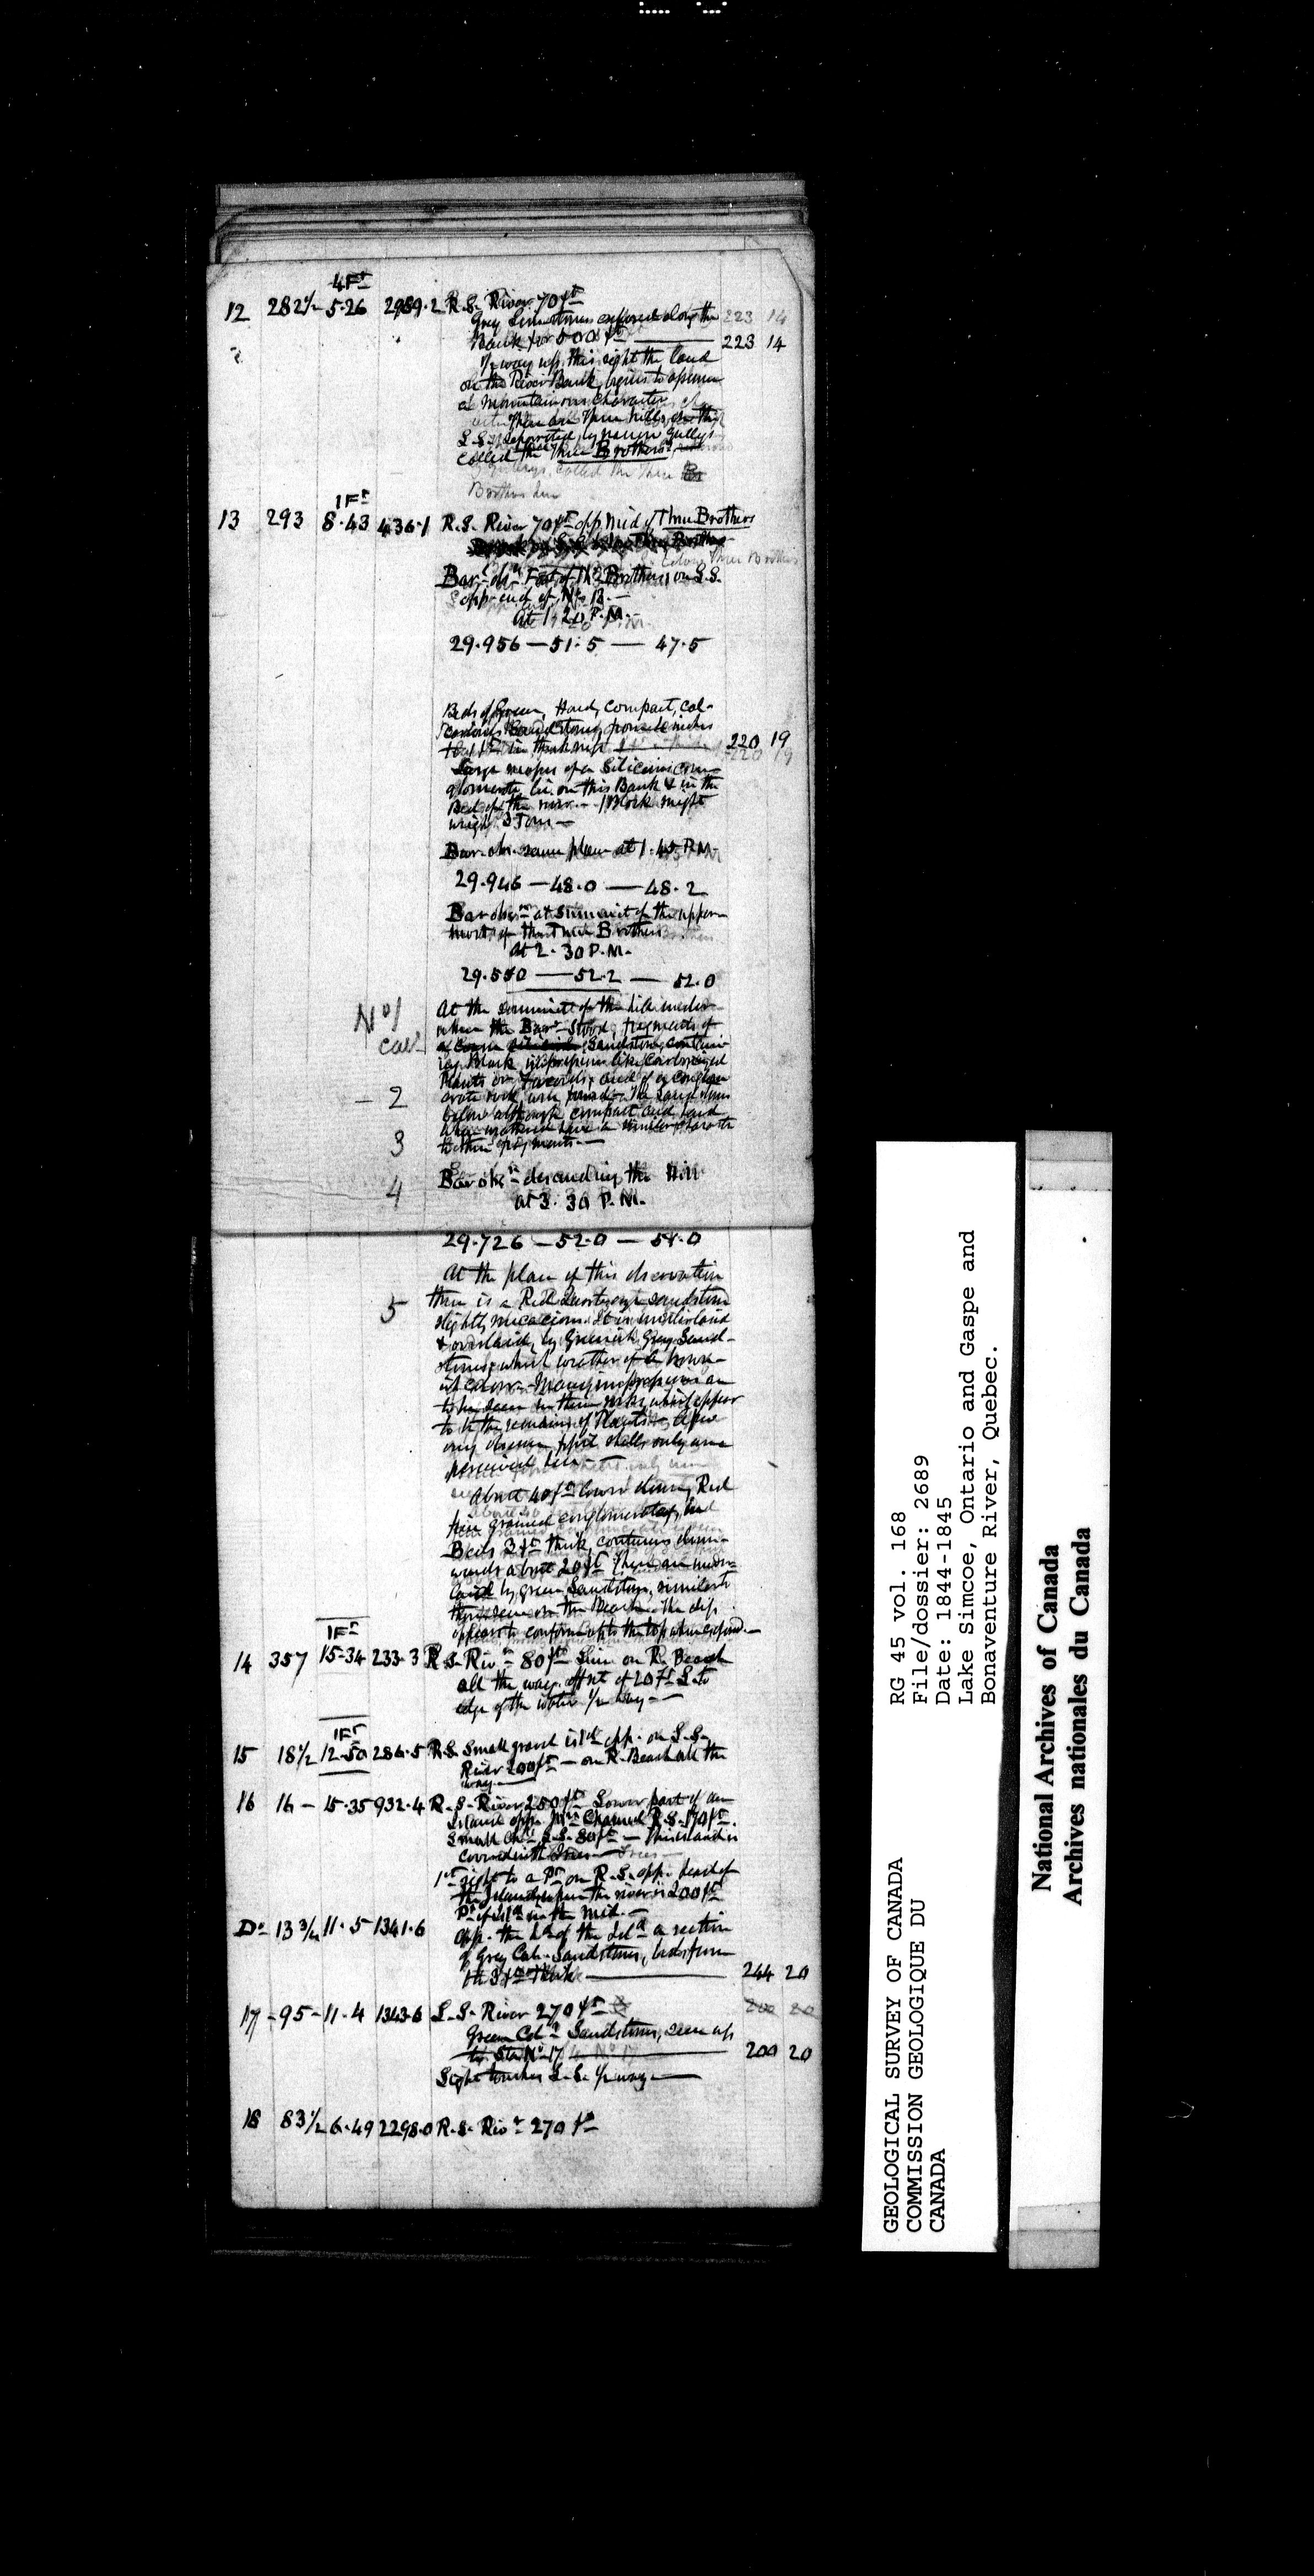 4 Ft
12 282½ 5·26 2989·2 R.S. River 70 ft
Grey Limestones exposed along the 223 14
Bank for 500 ft 223 14
½ way up this sight the land
on the River Bank, begins to assume
a mountainous character
There are three hills on the
L.S. separated by narrow gullys
called the Three Brothers
called the Three
Brothers
1 Ft
13 293 8·43 436·1 R.S. River 70 ft opp mid of Three Brothers
Three Brothers
Bar. obsn Foot of the Brothers on L.S.
opp. end of No 13.—
At 1, 20 P.M.—
29.956 — 51.5 — 47.5
Beds of Green, Hard, compact, cal-
careous Sandstones, from 2 inches
to 1 ft in thickness 220 19
Large masses of a Siliceous con-
glomerate lie on this Bank & in the
Bed of the river.— 1 Block might
weigh 3 Tons —
Bar. obs. same place at 1.45 P.M.
29.946 — 48.0 — 48.2
Bar obsn at summit of the upper-
most of the Three Brothers
At 2.30 P.M.
29.550 — 52.2 — 52.0
No 1
At the summit of the hill under
where the Bar. stood, fragments of
a Sandstone, contain-
ing Black impressions like Carbonized
Plants or Fucoids, and of a conglom-
- 2
erate rock were found — The Sandstones
below although compact and hard
3
when weathered have a similar character
to these fragments.—
4
Bar obsn descending the Hill
at 3.30 P.M.
29.726 — 52.0 — 54.0
At the place of this observation
5
there is a Red Quartzose sandstone
slightly micaceous. It is underlaid
& overlaid, by Greenish Grey Sand-
stones which weather of a brown-
ish colour. Many impressions are
to be seen in these rocks which appear
to be the remains of Plants. A few
very obscure fossil shells only were
perceived here.—
About 40 ft lower down, Red
fine grained conglomerates, in
Beds 3 ft thick, continues down-
wards about 20 ft These are under-
laid by green Sandstones, similar to
those seen on the Beach. The dip
appears to conform up to the top where exposed.—
1 Ft
14 357 15·34 233·3 R.S. Rivr 80 ft Line on R. Beach
all the way. offset of 20 Ft L. to
edge of the water ½ way —
1 Ft
15 18½ 12·50 286·5 R.S. Small gravel isld opp. on L.S.
River 200 ft — on R. Beach all the
way —
16 16 — 15·35 932·4 R.S. River 250 ft Lower part of an
Island opp. Mn Channel R.S. 170 ft.
Small Chl L.S. 80 ft — This island is
covered with Trees —
1st sight to a Pt on R.S. opp. head of
the Island where the river is 200 ft
Pt of Isld in the mid.—
Do 13¾ 11·5 1341·6 opp. the Hd of the Isld a section
of Grey Cal. Sandstones, beds from
to 3 ft thick 244 20
17 -95- 11·4 1343·6 L.S. River 270 ft
200 20
Green Cal. Sandstones, seen up
to Sta No 17 200 20
Sight touches L.S. ½ way —
18 83½ 6·49 2298·0 R.S. Rivr 270 ft
GEOLOGICAL SURVEY OF CANADA
COMMISSION GEOLOGIQUE DU
CANADA
RG 45 vol. 168
File/dossier: 2689
Date: 1844-1845
Lake Simcoe, Ontario and Gaspe and
Bonaventure River, Quebec.
National Archives of Canada
Archives nationales du Canada